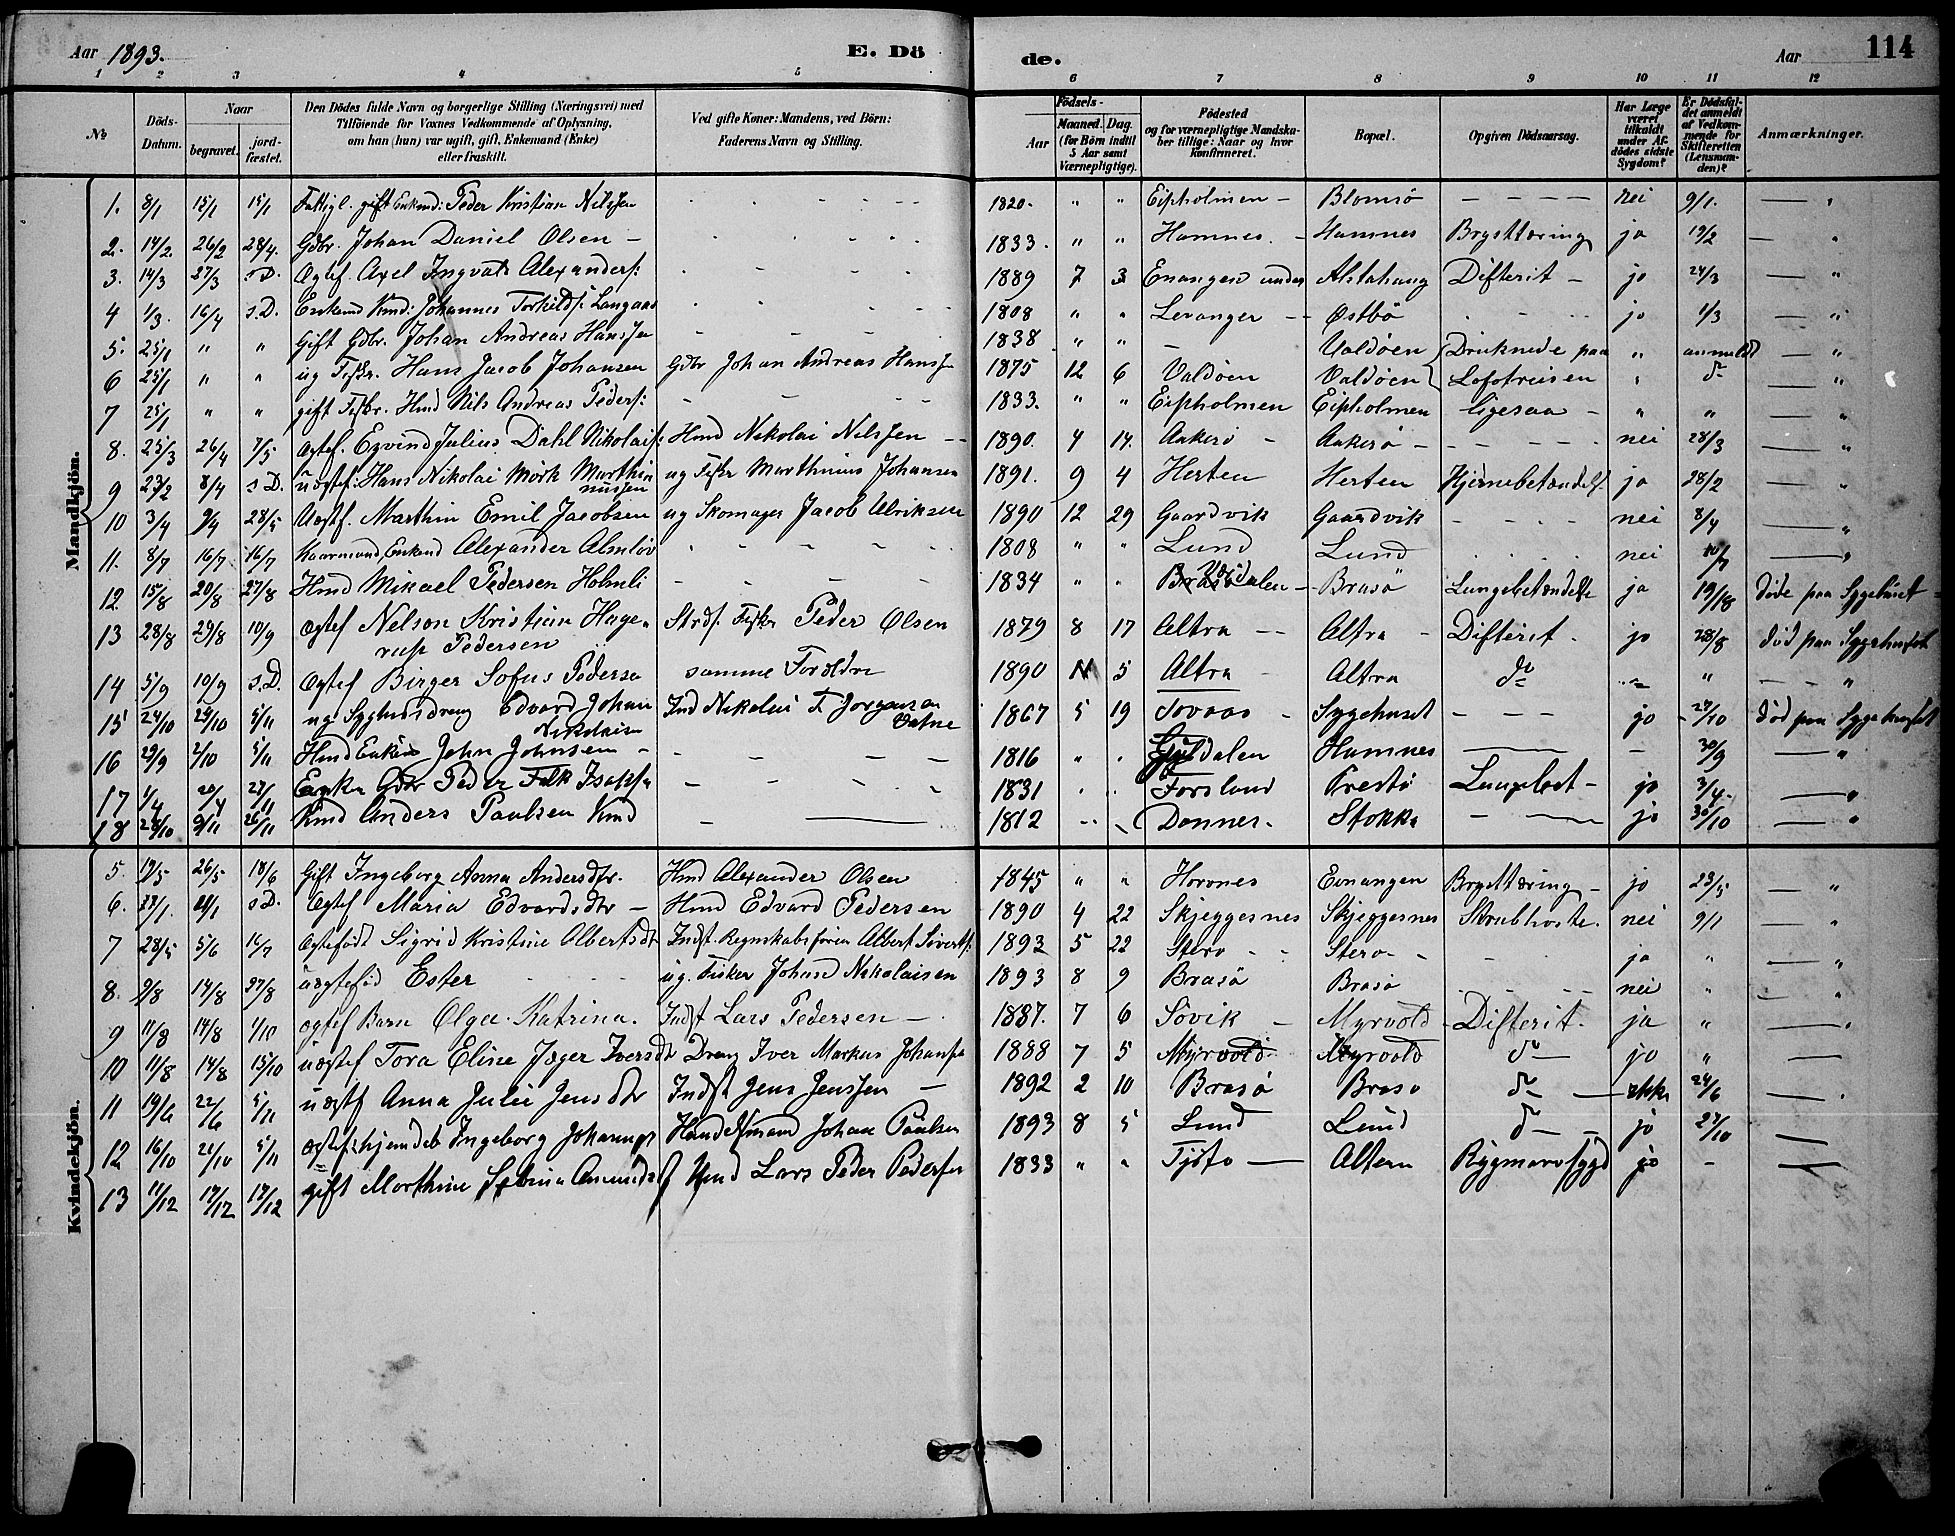 Aar 1893. E. Dö de. Aar 114
1 2 3 4 5 6 7 8 9 10 11 12
No
Döds-Datum.
Naar
begravet.
jord-fæstet.
Den Dödes fulde Navn og borgerlige Stilling (Næringsvei) med
Tilföiende for Voxnes Vedkommende af Oplysning,
om han (hun) var ugift, gift, Enkemand (Enke)
eller fraskilt.
Ved gifte Koner: Mandens, ved Börn:
Faderens Navn og Stilling.
Födsels-
Aar
Maaned. Dag.
(for Börn indtil
5 Aar samt
Værnepligtige).
Födested
og for værnepligtige Mandska-
ber tillige: Naar og hvor
konfirmeret.
Bopæl.
Opgiven Dödsaarsag.
Har Læge
været
tilkaldt
under Af-
dödes sidste
Sygdom?
Er Dödsfal-
det anmeldt
af Vedkom-
mende for
Skifteretten
(Lensman-
den)?
Anmærkninger.
Mandkjön.
1. 8/1 15/1 15/1 Fattigl. gift Enkmd: Peder Kristian Nilssen 1820. " " Eipholmen - Blomsö - - - - nei 9/1. — "
2. 14/2. 26/2 28/4. Gdbr. Johan Daniel Olsen - 1833. " " Hamnes. - Hamnes Brysttæring ja 19/2 — "
3. 14/3 27/3 s.D. Ægtef. Axel Ingvald Alexanders: 1889 7 3 Enangen under Alstahaug Difterit - ja 24/3 — "
4 1/3. 16/4 s.D. Enkemd Kmd: Johannes Torkilds: Langaas 1808 " " Levanger - - Østbö ja 1/3 — "
5. 25/1 " " Gift Gdbr. Johan Andreas Hanssen 1838 " " - Valdøen Druknede paa " anmeldt — "
6 25/1 " " ug Fiskr. Hans Jacob Johansen Gdbr Johan Andreas Hanss 1875 12 6 Valdöen Valdöen Lofotreisen " do — "
7 25/1 " " gift Fiskr. Hmd Nils Andreas Peders: 1833. " " Eipholmen Eipholmen ligesaa - " " — "
8. 25/3 26/4 7/5 Ægtef. Eyvind Julius Dahl Nikolais: Hmd Nikolai Nilssen - - 1890. 4 14. Aakerö - Aakerö - - - - - nei 28/3 — "
9 23/2 8/4 s.D. uægtef: Hans Nikolai Mörk Marthi
nussen ug Fiskr Marthinius Johansen 1891. 9 4 Herten Herten Hjernebetændels. ja 28/2 — "
10 3/4 9/4 28/5 Uægtf. Marthin Emil Jacobsen ug Skomager Jacob Ulriksen 1890 12 29 Gaardvik Gaardvik - - - - nei 8/4 — "
11. 8/7 16/7 16/7 Kaarmand Enkemd Alexander Almlöv 1808 " " Lund Lund nei 10/7 — "
12 15/8 20/8 27/8 Hmd Mikael Pedersen Holmli 1834 " " Brasö - Brasö Lungebetændelse ja 19/18 døde paa Sygehuset
13 28/8 29/8 10/9 Ægtef Nelson Kristian Hage-
rup Pedersen Strds. Fiskr Peder Olsen 1879 8 17 Altra - - Altra - Difterit. ja 28/8 död paa Sygehuset
14 5/9 10/9 s.D. Ægtef Birger Sofus Pederse samme Foroldre 1890 5 Altra Altra do " " — "
15 24/10 29/10 5/11 ug Sygehusdreng Edvard Johan
Nikolaisen Ind Nikolai F. Jorgensen
Vatne 1867 5 19 - Sygehuset - - - jo 27/10 död paa Sygehuset
16 29/9 2/10 5/11 Hmd John Johnsen - 1816 " " Guldalen Hamnes - - 30/9 — "
17 1/4 20/4 27/1 Enke Gdbr Peder Falk Isaks 1831 " " Forsland Prestö Lungebet - jo 3/4. — "
18 28/10 9/11 26/11 Kmd Anders Paulsen Kmd - 1812 Donnes. Stokka - - jo 30/10 — "
Kvindekjön.
5. 19/5 26/5 18/6 Gift Ingeborg Anna Andersdtr. Hmd Alexander Olsen 1845 " " Hornes Evnangen Brysttæring - jo 23/5 — "
6. s.D. Ægtef Maria Edvardsdtr - Hmd Edvard Pedersen 1890 4 22 Skjeggesnes Skjeggesnes Strubhoste. nei 9/1 — "
7 28/5 5/6 16/7 Ægtefödt Sigrid Kristine Albertsdt Indst. Regnskabsförer Albert Siverts: 1893 5 22 Stero - Stero - ja " — "
8. 9/8 14/8 27/8 uægtefød Ester - - ug. Fisker Johan Nikolaisen 1893 8 9 Brasö Brasö - nei " — "
9 11/8 14/8 1/10 Ægtef Barn Olga Katrina. Indst Lars Pedersen - 1887. 7 6 Sövik - Myrvold Difterit. ja " — "
10 11/8 14/8 15/10 uægtef Tora Eline Jæger Iversdt Dreng Iver Markus Johans 1888 7 5 Myrvold Myrvold do jo " —
11 19/6 22/6 5/11 uægtf Anna Julie Jensdtr Indst Jens Jenssen - 1892 2 10 Brasö Braso do — ikke 24/6 — .
12 16/10 20/10 5/11 Ægtef. hjemdøb Ingeborg Johanna Handelsmand Johan Paulsen 1893 8 5 Lund Lund do - jo 27/10 —
13 11/12 17/12 17/12 gift Marthine Hmd Lars Peder Pedersen 1833 " " Tjöto — Altern Rygmarvssygd jo - —